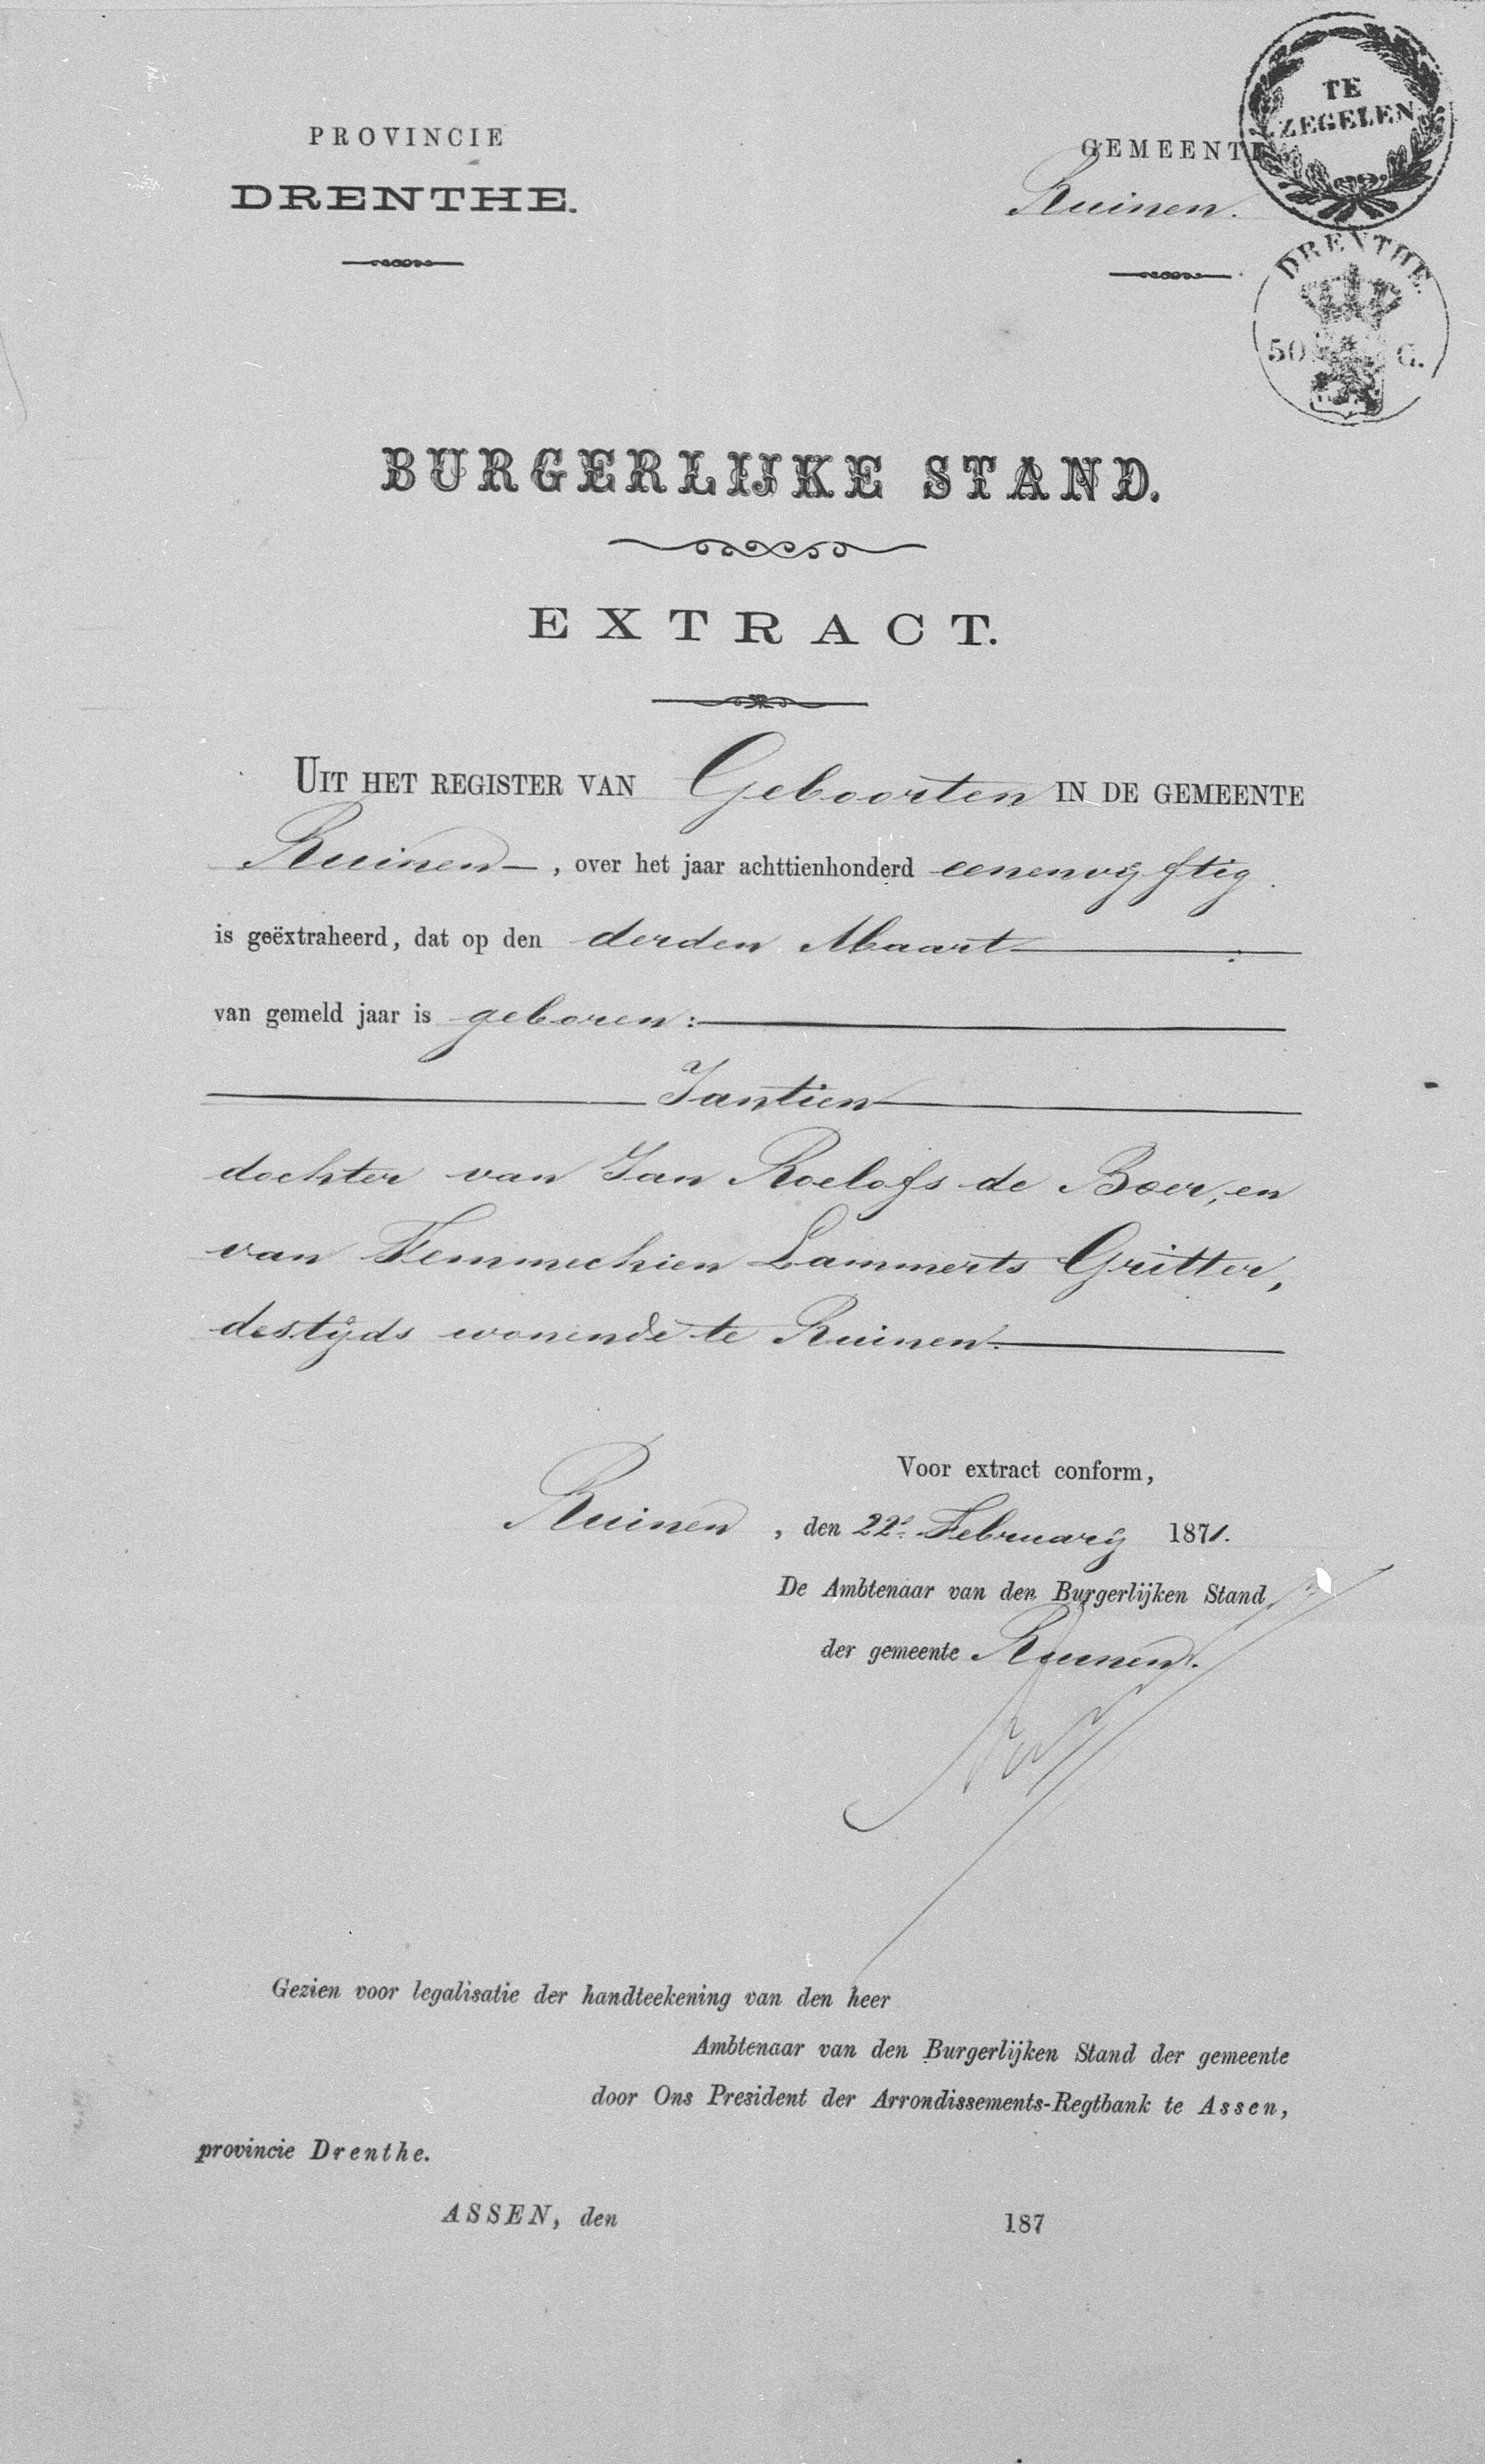 PROVINCIE
DRENTHE.
GEMEENTE
Ruinen.
TE
ZEGELEN
DRENTHE.
50 C.
BURGERLIJKE STAND.
EXTRACT.
UIT HET REGISTER VAN Geboorten IN DE GEMEENTE
Ruinen, over het jaar achttienhonderd eenenvijftig.
is geëxtraheerd, dat op den derden Maart
van gemeld jaar is geboren:
Jantien
dochter van Jan Roelofs de Boer, en
van Femmechien Lammerts Gritter,
destijds wonende te Ruinen.
Voor extract conform,
Ruinen, den 22e February 1871.
De Ambtenaar van den Burgerlijken Stand
der gemeente Ruinen.
Gezien voor legalisatie der handteekening van den heer
Ambtenaar van den Burgerlijken Stand der gemeente
door Ons President der Arrondissements-Regtbank te Assen,
provincie Drenthe.
ASSEN, den 187